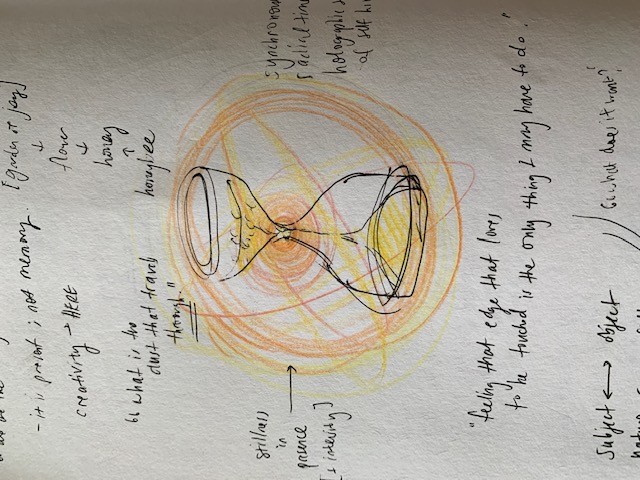 - it is present ; not memory.
[garden of joy]
↓
flower
↓
honey
↑
honeybee
creativity → HERE
↳ what is the
dust that travels
through."
stillness
in
presence →
[+ intensity]
synchronous
radial time
holographic
of self
"feeling that edge that loves
to be touched is the only thing I may have to do."
Subject ↔ object
↳ what does it want?
nature